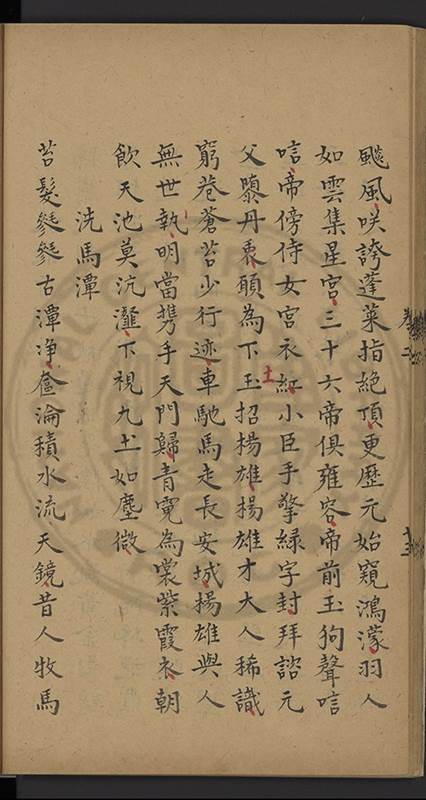 飈風咲誇蓬萊指絕頂更歷元始窺鴻濛羽人
如雲集星宮三十六帝俱雍容帝前玉狗聲㗲
㗲帝傍侍女宮衣紅小臣手擎緑字封拜諮元
土
父隳丹衷願為下玉招楊雄楊雄才大人稀識
窮巷蒼苔少行迹車馳馬走長安城楊雄與人
無世執明當携手天門歸青霓為裳紫霞衣朝
飲天池莫沆瀣下視九土如塵微
洗馬潭
苔髮毿毿古潭净奩淪積水流天鏡昔人牧馬
卷二